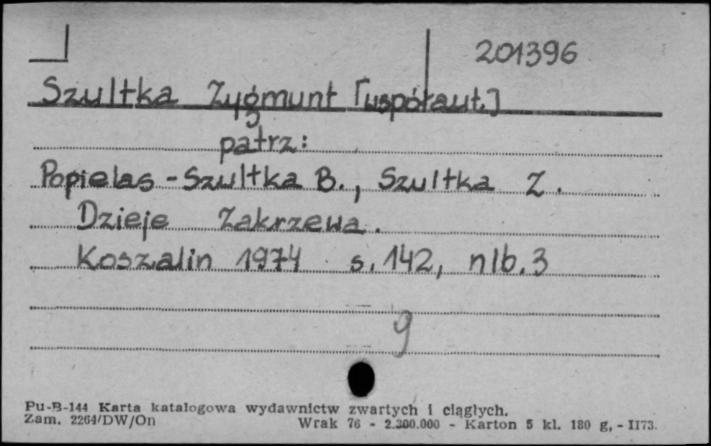 201396
Szultka Zygmunt [współaut.]
patrz:
Popielas-Szultka B., Szultka Z.
Dzieje Zakrzewa.
Koszalin 1974 s. 142, nlb. 3
g
Pu-B-144 Karta katalogowa wydawnictw zwartych i ciągłych.
Zam. 2264/DW/On Wrak 76 - 2.300.000 - Karton 5 kl. 180 g, - II73.